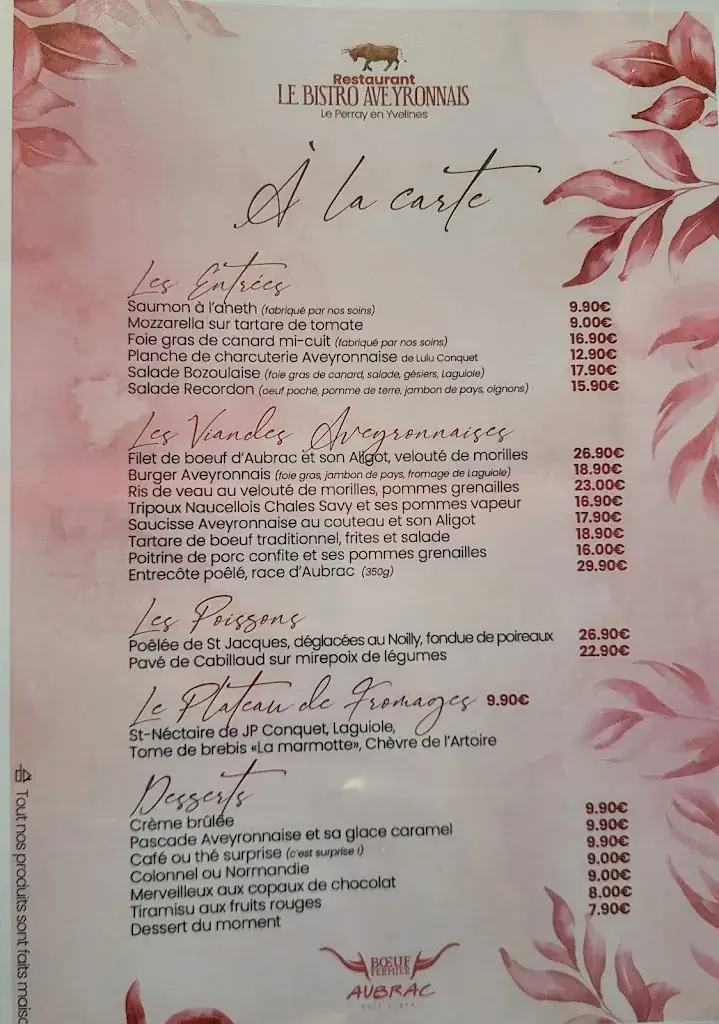 Restaurant
LE BISTRO AVEYRONNAIS
Le Perray en Yvelines
À la carte
Les Entrées
Saumon à l'aneth (fabriqué par nos soins) 9.90€
Mozzarella sur tartare de tomate 9.00€
Foie gras de canard mi-cuit (fabriqué par nos soins) 16.90€
Planche de charcuterie Aveyronnaise de Lulu Conquet 12.90€
Salade Bozoulaise (foie gras de canard, salade, gésiers, Laguiole) 17.90€
Salade Recordon (oeuf poché, pomme de terre, jambon de pays, oignons) 15.90€
Les Viandes Aveyronnaises
Filet de boeuf d'Aubrac et son Aligot, velouté de morilles 26.90€
Burger Aveyronnais (foie gras, jambon de pays, fromage de Laguiole) 18.90€
Ris de veau au velouté de morilles, pommes grenailles 23.00€
Tripoux Naucellois Chales Savy et ses pommes vapeur 16.90€
Saucisse Aveyronnaise au couteau et son Aligot 17.90€
Tartare de boeuf traditionnel, frites et salade 18.90€
Poitrine de porc confite et ses pommes grenailles 16.00€
Entrecôte poêlé, race d'Aubrac (350g) 29.90€
Les Poissons
Poêlée de St Jacques, déglacées au Noilly, fondue de poireaux 26.90€
Pavé de Cabillaud sur mirepoix de légumes 22.90€
Le Plateau de Fromages 9.90€
St-Néctaire de JP Conquet, Laguiole,
Tome de brebis «La marmotte», Chèvre de l'Artoire
Desserts
Crème brûlée 9.90€
Pascade Aveyronnaise et sa glace caramel 9.90€
Café ou thé surprise (c'est surprise !) 9.90€
Colonnel ou Normandie 9.00€
Merveilleux aux copaux de chocolat 9.00€
Tiramisu aux fruits rouges 8.00€
Dessert du moment 7.90€
Tout nos produits sont faits maiso
BŒUF
FERMIER
AUBRAC